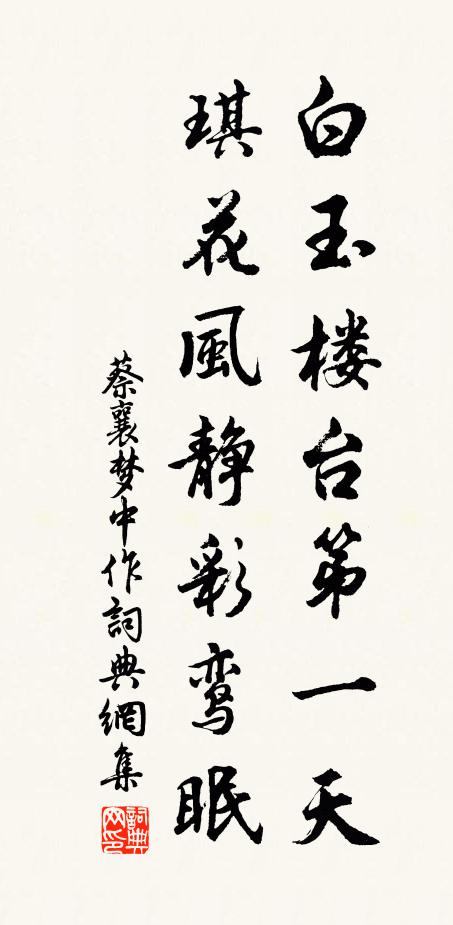 白玉楼台第一天
琪花風静彩鸾眠
蔡襄梦中作詞典網集
詞典网印